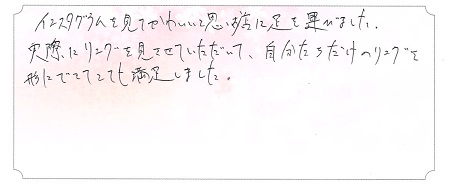 インスタグラムを見てかわいいと思いお店に足を運びました。
実際にリングを見させていただいて、自分たちだけのリングを
形にできてとても満足しました。